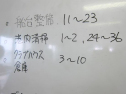 舞台整備 11〜23
市内清掃 1〜2, 24〜36
クラブハウス 3〜10
倉庫